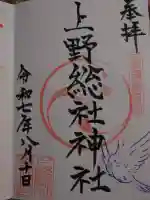 奉拝
上野総社神社
令和七年八月十日